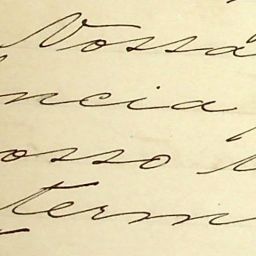 Vossa
ncia
osso
term